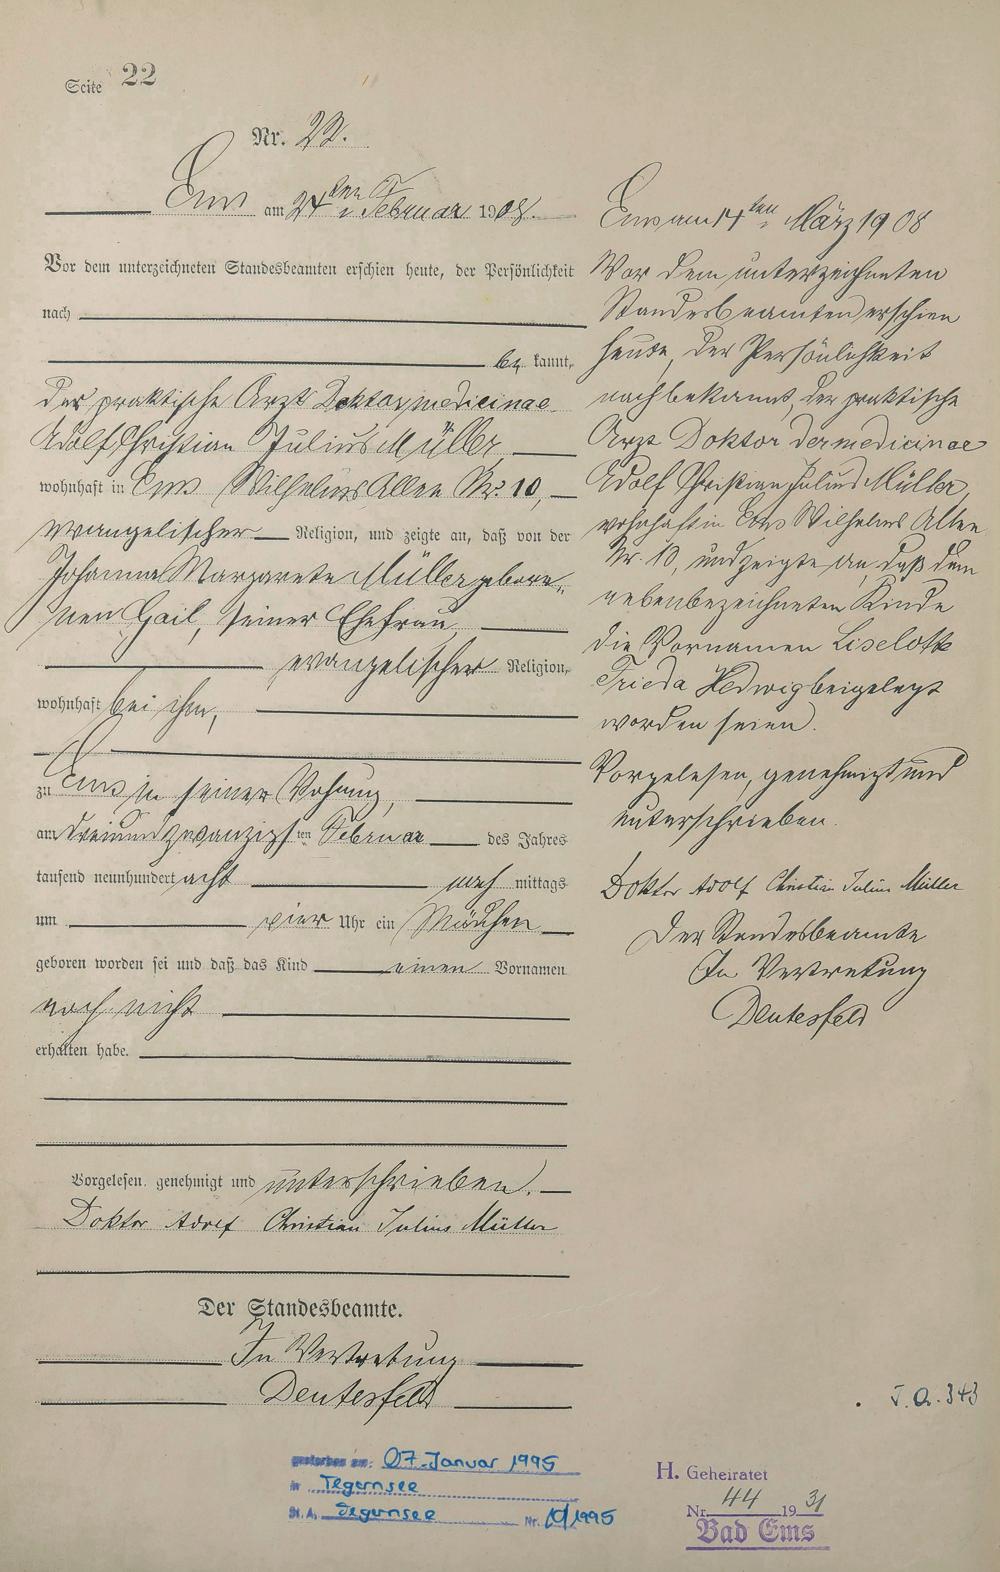 Seite 22
Nr. 22.
Ems am 24ten Februar 1908.
Vor dem unterzeichneten Standesbeamten erschien heute, der Persönlichkeit
nach
be kannt,
der praktische Arzt Doktor medicinae
Adolf Christian Julius Müller,
wohnhaft in Ems Wilhelms Allee No. 10,
evangelischer Religion, und zeigte an, daß von der
Johanna Margarete Müller gebore„
nen Hail, seiner Ehefrau,
evangelischer Religion,
wohnhaft bei ihm,
zu Ems in seiner Wohnung,
am dreiundzwanzigsten Februar des Jahres
tausend neunhundert acht nach mittags
um vier Uhr ein Mädchen
geboren worden sei und daß das Kind einen Vornamen
noch nicht
erhalten habe.
Vorgelesen, genehmigt und unterschrieben.
Doktor Adolf Christian Julius Müller
Der Standesbeamte.
In Vertretung
Deutesfeld
gestorben am: 07. Januar 1995
in Tegernsee
St.A. Tegernsee Nr. 10/1995
Ems am 14ten März 1908
Vor dem unterzeichneten
Standesbeamten erschien
heute, der Persönlichkeit
nach bekannt, der praktische
Arzt Doktor der medicinae
Adolf Christian Julius Müller,
wohnhaft in Ems Wilhelms Allee
Nr. 10, und zeigte an, daß dem
nebenbezeichneten Kinde
die Vornamen Liselotte
Frieda Hedwig beigelegt
worden seien.
Vorgelesen, genehmigt und
unterschrieben.
Doktor Adolf Christian Julius Müller
Der Standesbeamte
In Vertretung
Deutesfeld
J. A. 343
H. Geheiratet
Nr. 44 1931
Bad Ems